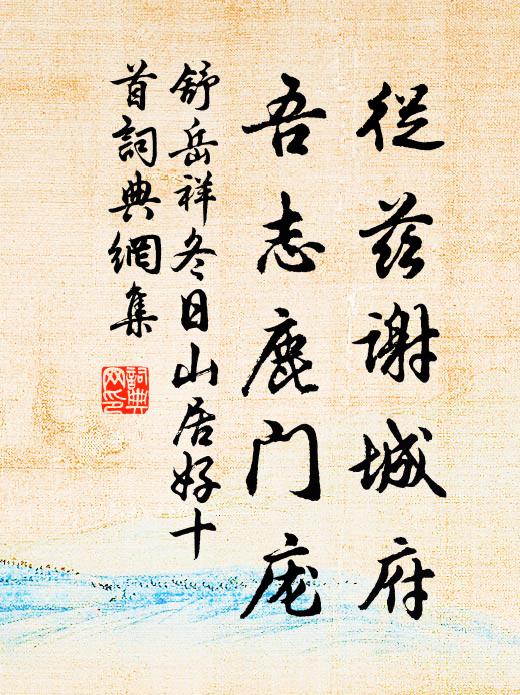 從茲謝城府
吾志鹿门庞
舒岳祥冬日山居好十
首詞典網集
詞典
网印